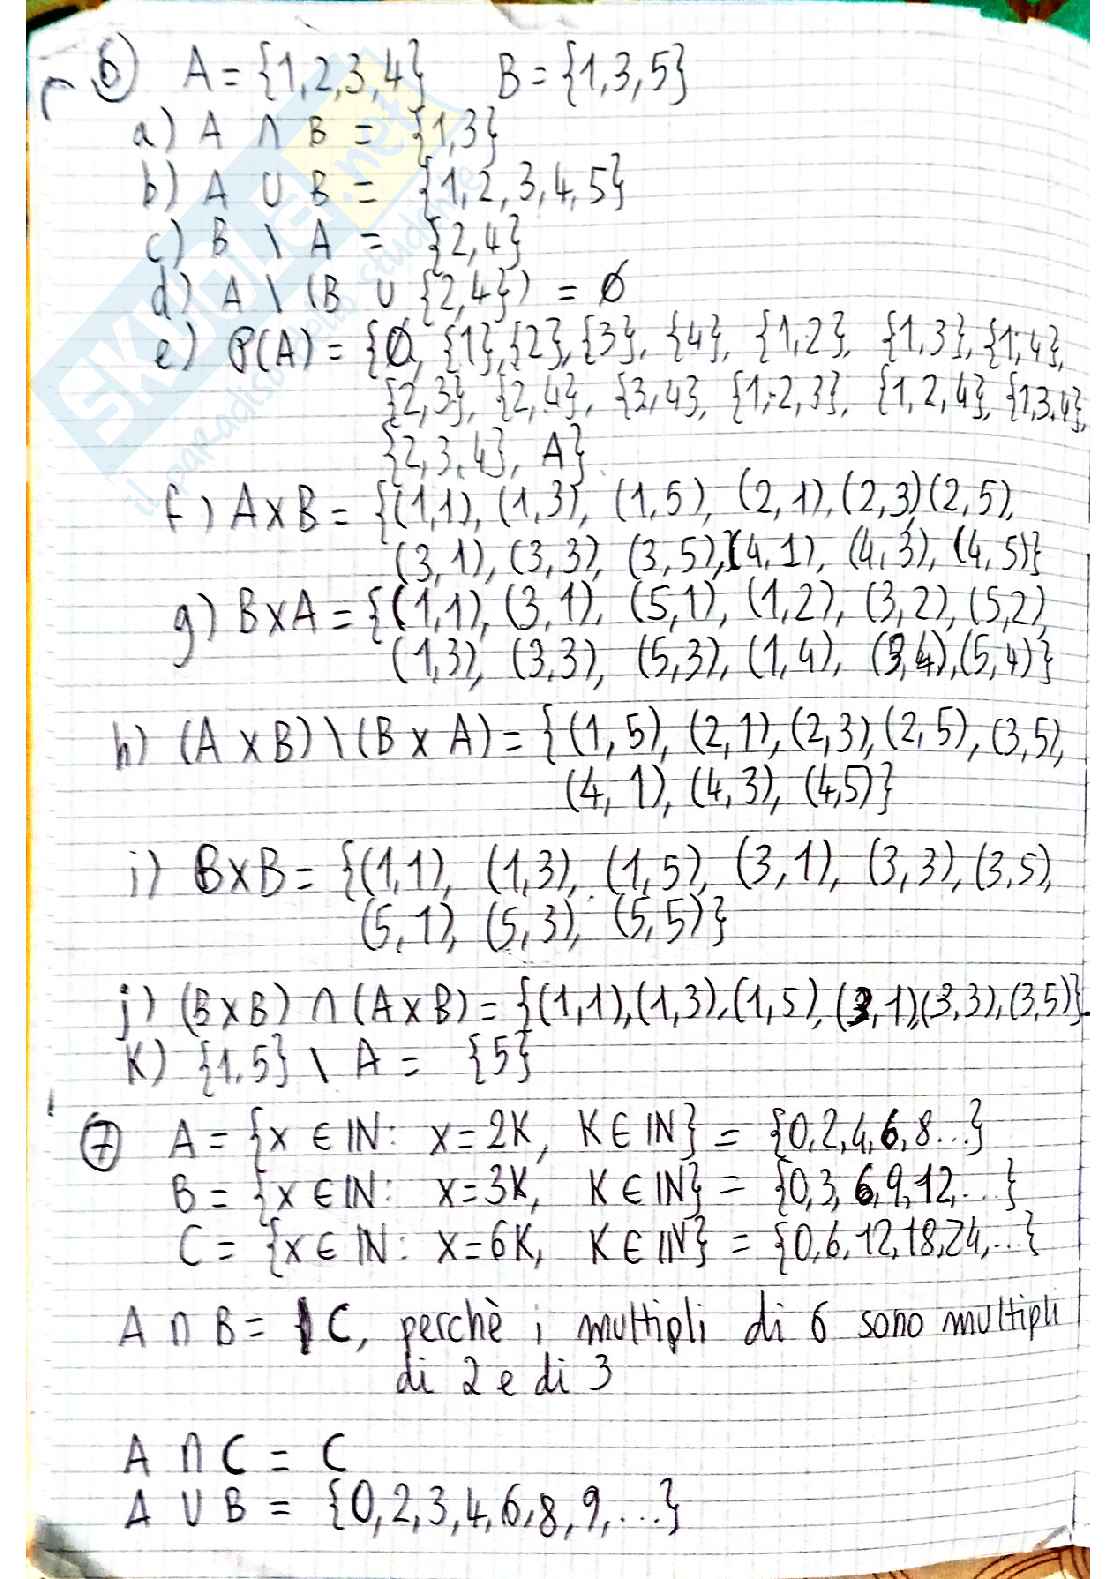 6) A = {1,2,3,4} B = {1,3,5}
a) A ∩ B = {1,3}
b) A ∪ B = {1,2,3,4,5}
c) B \ A = {2,4}
d) A \ (B ∪ {2,4}) = ∅
e) P(A) = {∅, {1},{2},{3}, {4}, {1,2}, {1,3},{1,4},
{2,3}, {2,4}, {3,4}, {1,2,3}, {1,2,4}, {1,3,4},
{2,3,4}, A}
f) A×B = {(1,1), (1,3), (1,5), (2,1), (2,3)(2,5),
(3,1), (3,3), (3,5), (4,1), (4,3), (4,5)}
g) B×A = {(1,1), (3,1), (5,1), (1,2), (3,2), (5,2),
(1,3), (3,3), (5,3), (1,4), (3,4),(5,4)}
h) (A×B) \ (B×A) = {(1,5), (2,1), (2,3), (2,5), (3,5),
(4,1), (4,3), (4,5)}
i) B×B = {(1,1), (1,3), (1,5), (3,1), (3,3), (3,5),
(5,1), (5,3), (5,5)}
j) (B×B) ∩ (A×B) = {(1,1),(1,3),(1,5),(3,1),(3,3),(3,5)}
K) {1,5} \ A = {5}
7) A = {x ∈ IN: x=2K, K ∈ IN} = {0,2,4,6,8...}
B = {x ∈ IN: x=3K, K ∈ IN} = {0,3,6,9,12,...}
C = {x ∈ IN: x=6K, K ∈ IN} = {0,6,12,18,24,...}
A ∩ B = C, perchè i multipli di 6 sono multipli
di 2 e di 3
A ∩ C = C
A ∪ B = {0,2,3,4,6,8,9,...}
SKUOLA.net
il paradiso dello studente